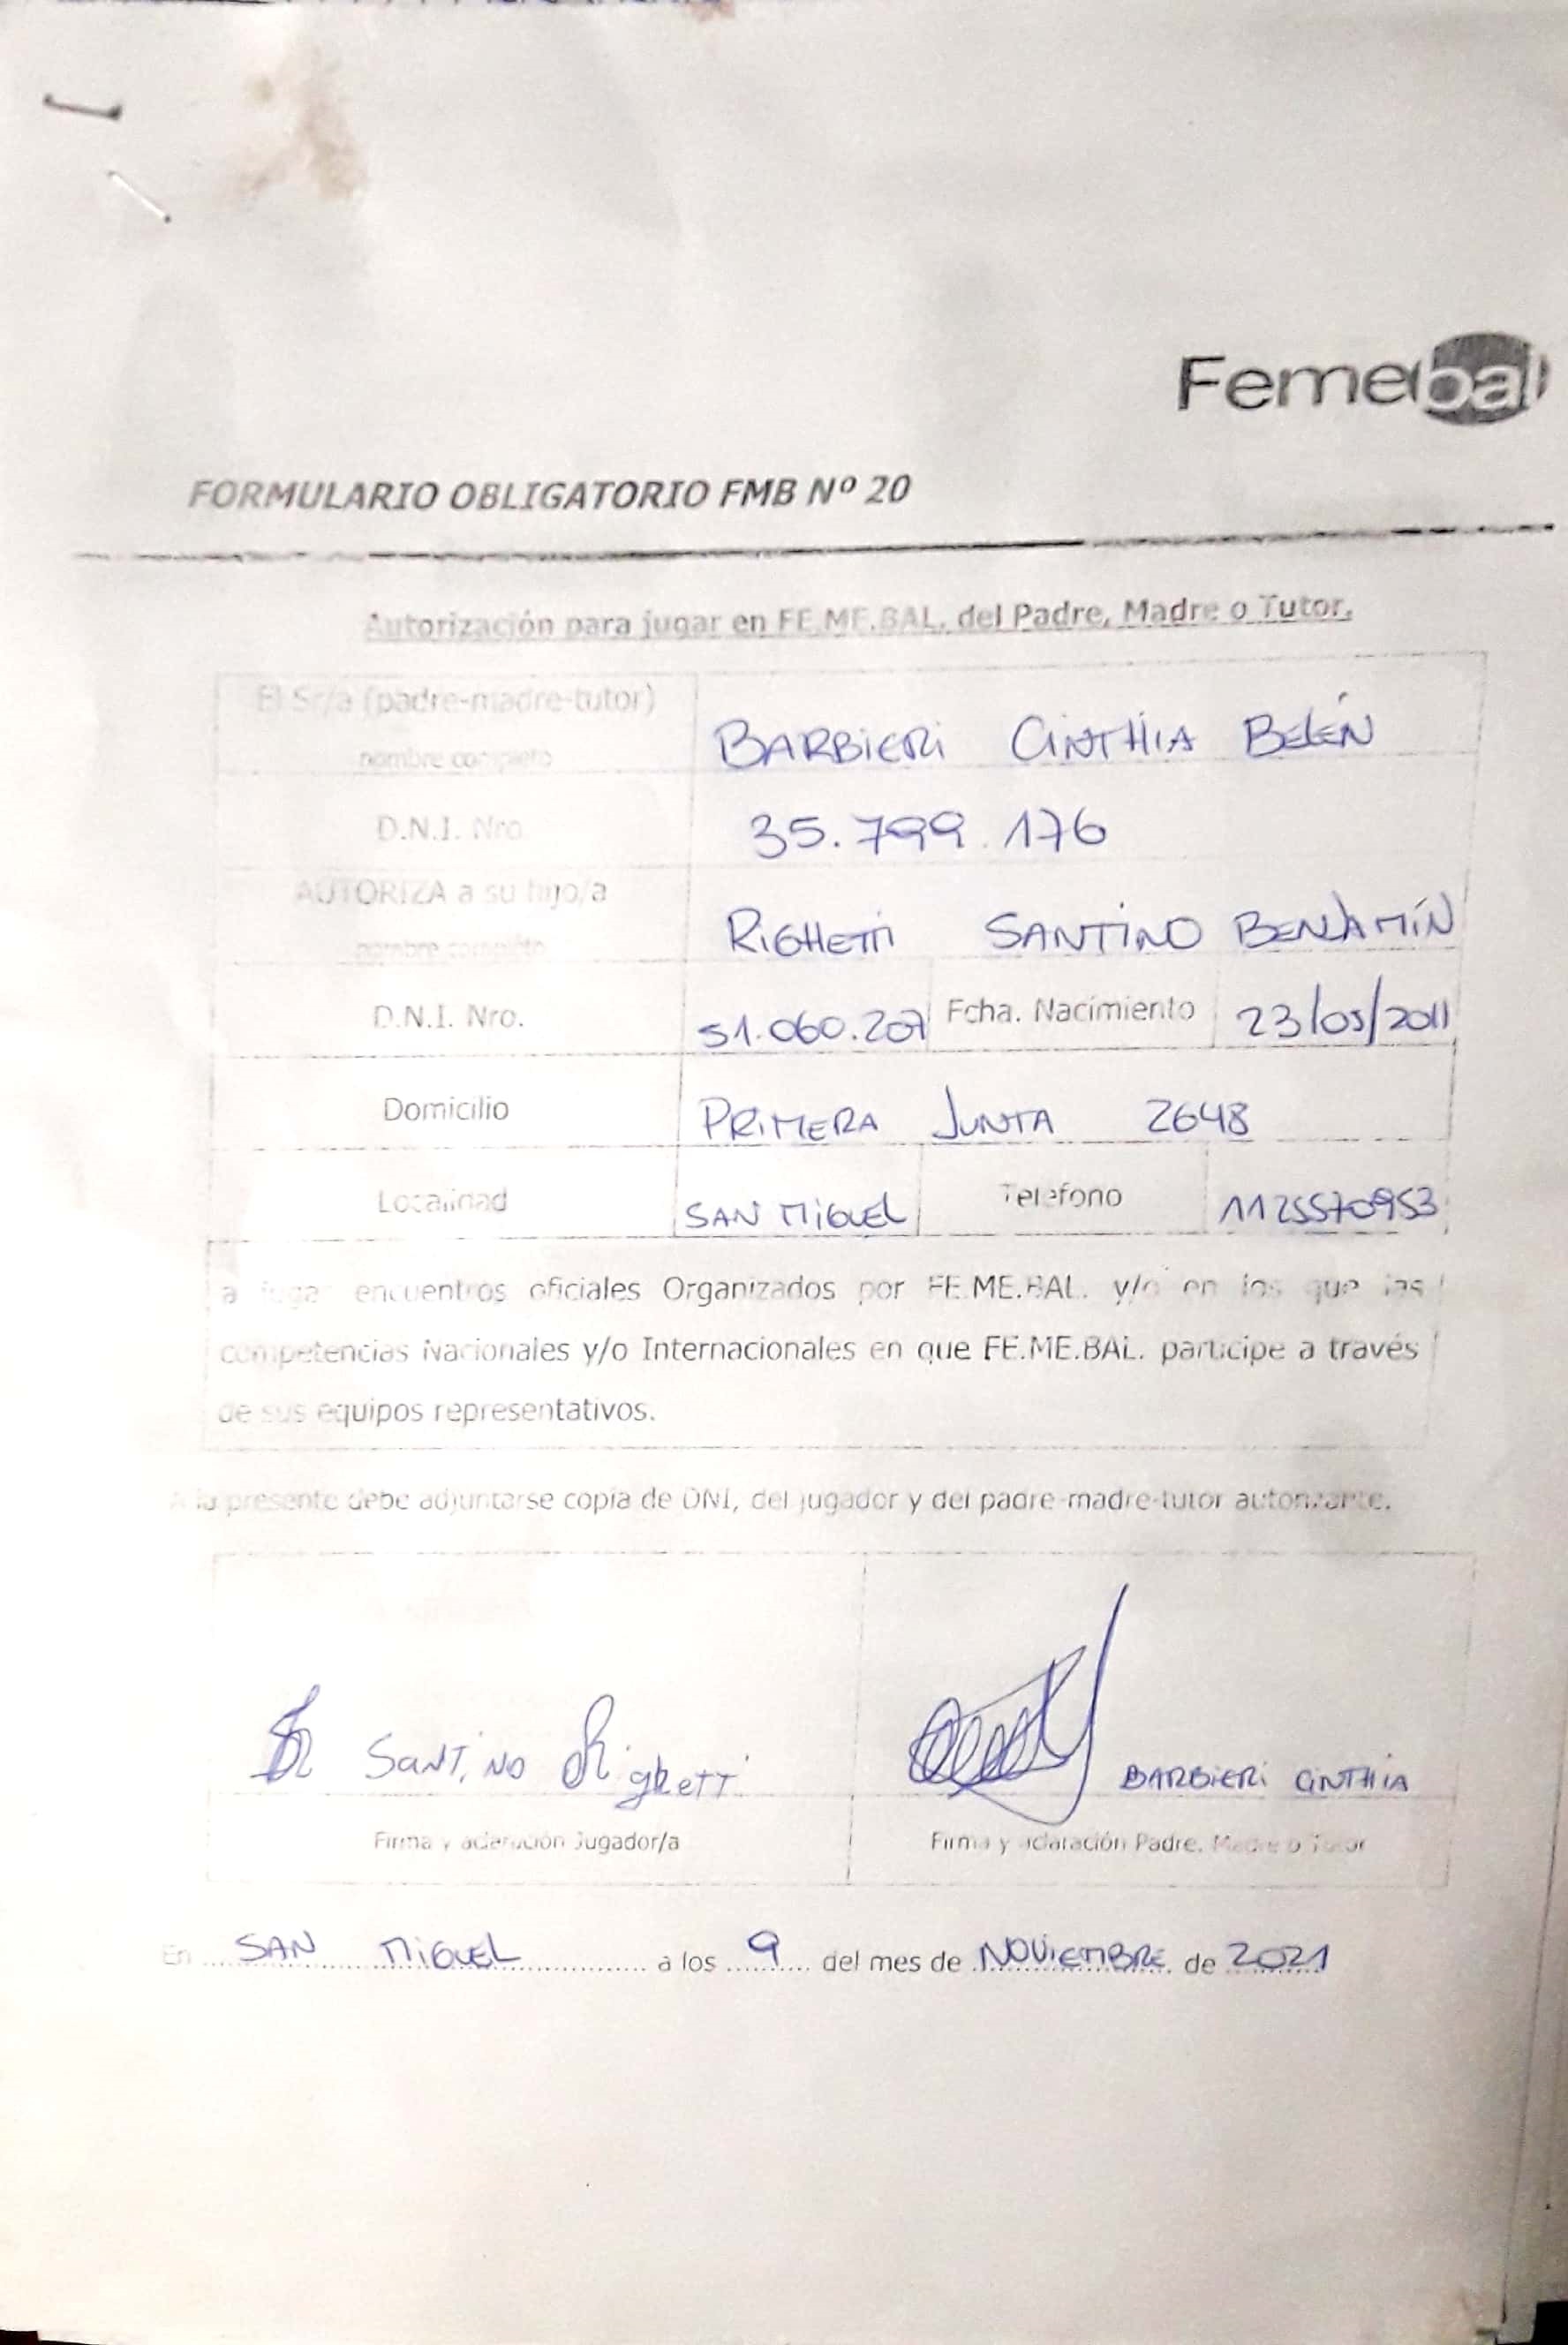 Femebal
FORMULARIO OBLIGATORIO FMB Nº 20
Autorización para jugar en FE.ME.BAL. del Padre, Madre o Tutor.
El Sr/a (padre-madre-tutor)
nombre completo
BARBIERI CINTHIA BELÉN
D.N.I. Nro
35.799.176
AUTORIZA a su hijo/a
nombre completo
RIGHETTI SANTINO BENJAMÍN
D.N.I. Nro.
51.060.207
Fcha. Nacimiento
23/05/2011
Domicilio
PRIMERA JUNTA 2648
Localidad
SAN MIGUEL
Telefono
1125570953
a jugar encuentros oficiales Organizados por FE.ME.BAL. y/o en los que las
competencias Nacionales y/o Internacionales en que FE.ME.BAL. participe a través
de sus equipos representativos.
A la presente debe adjuntarse copia de DNI, del jugador y del padre-madre-tutor autorizante.
Santino Righetti
BARBIERI CINTHIA
Firma y aclaración Jugador/a
Firma y aclaración Padre, Madre o Tutor
En SAN MIGUEL a los 9 del mes de NOVIEMBRE de 2021